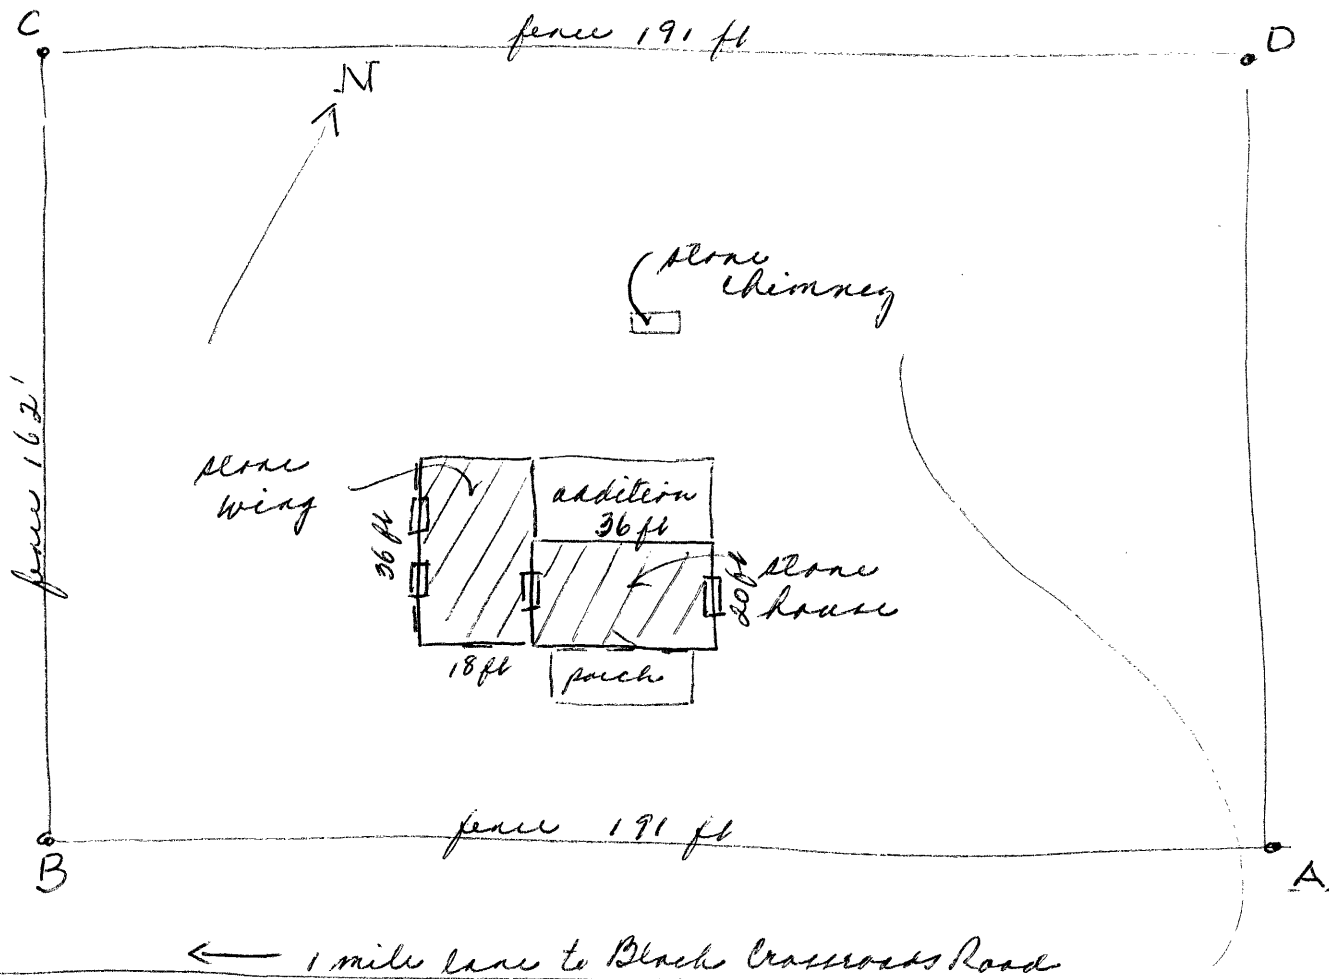 C
fence 191 ft
D
N
stone
chimney
fence 162'
stone
wing
36 ft
addition
36 ft
20 ft
stone
house
18 ft
porch
fence 191 ft
B
A
← 1 mile lane to Black Crossroads Road